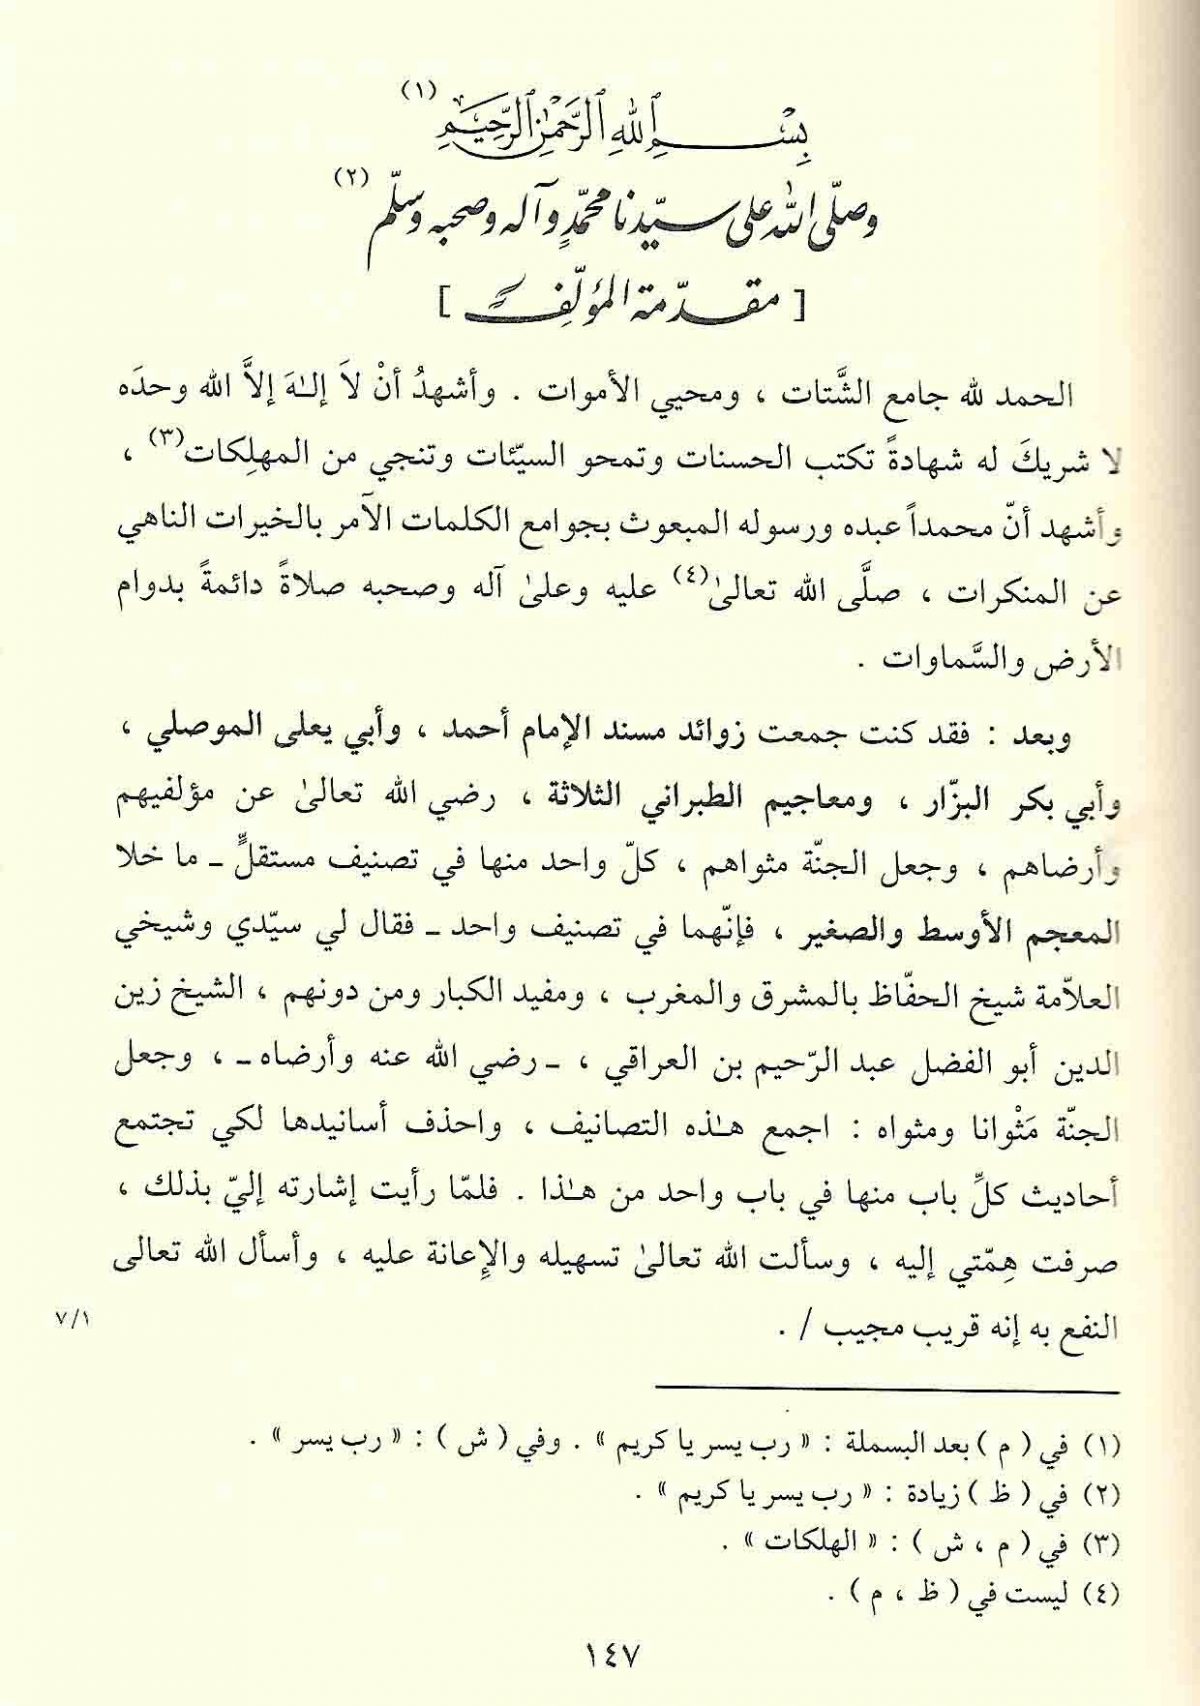 بِسْمِ اللهِ الرَّحْمٰنِ الرَّحِيْمِ (١)
وصلّى الله على سيّدنا محمّدٍ وآله وصحبه وسلّم (٢)
[ مقدّمة المؤلّف ]
الحمد لله جامع الشَّتات ، ومحيي الأموات . وأشهدُ أنْ لاَ إلـٰهَ إلاَّ الله وحدَه
لا شريكَ له شهادةً تكتب الحسنات وتمحو السيّئات وتنجي من المهلِكات(٣) ،
وأشهد أنّ محمداً عبده ورسوله المبعوث بجوامع الكلمات الآمر بالخيرات الناهي
عن المنكرات ، صلَّى الله تعالىٰ(٤) عليه وعلىٰ آله وصحبه صلاةً دائمةً بدوام
الأرض والسَّماوات .
وبعد : فقد كنت جمعت زوائد مسند الإمام أحمد ، وأبي يعلى الموصلي ،
وأبي بكر البزّار ، ومعاجيم الطبراني الثلاثة ، رضي الله تعالىٰ عن مؤلفيهم
وأرضاهم ، وجعل الجنّة مثواهم ، كلّ واحد منها في تصنيف مستقلٍّ ـ ما خلا
المعجم الأوسط والصغير ، فإنّهما في تصنيف واحد ـ فقال لي سيّدي وشيخي
العلاّمة شيخ الحفّاظ بالمشرق والمغرب ، ومفيد الكبار ومن دونهم ، الشيخ زين
الدين أبو الفضل عبد الرّحيم بن العراقي ، ـ رضي الله عنه وأرضاه ـ ، وجعل
الجنّة مَثْوانا ومثواه : اجمع هـٰذه التصانيف ، واحذف أسانيدها لكي تجتمع
أحاديث كلِّ باب منها في باب واحد من هـٰذا . فلمّا رأيت إشارته إليّ بذلك ،
صرفت هِمّتي إليه ، وسألت الله تعالىٰ تسهيله والإعانة عليه ، وأسأل الله تعالى
النفع به إنه قريب مجيب / .
٧/١
(١) في ( م ) بعد البسملة : « رب يسر يا كريم » . وفي ( ش ) : « رب يسر » .
(٢) في ( ظ ) زيادة : « رب يسر يا كريم » .
(٣) في ( م ، ش ) : « الهلكات » .
(٤) ليست في ( ظ ، م ) .
١٤٧